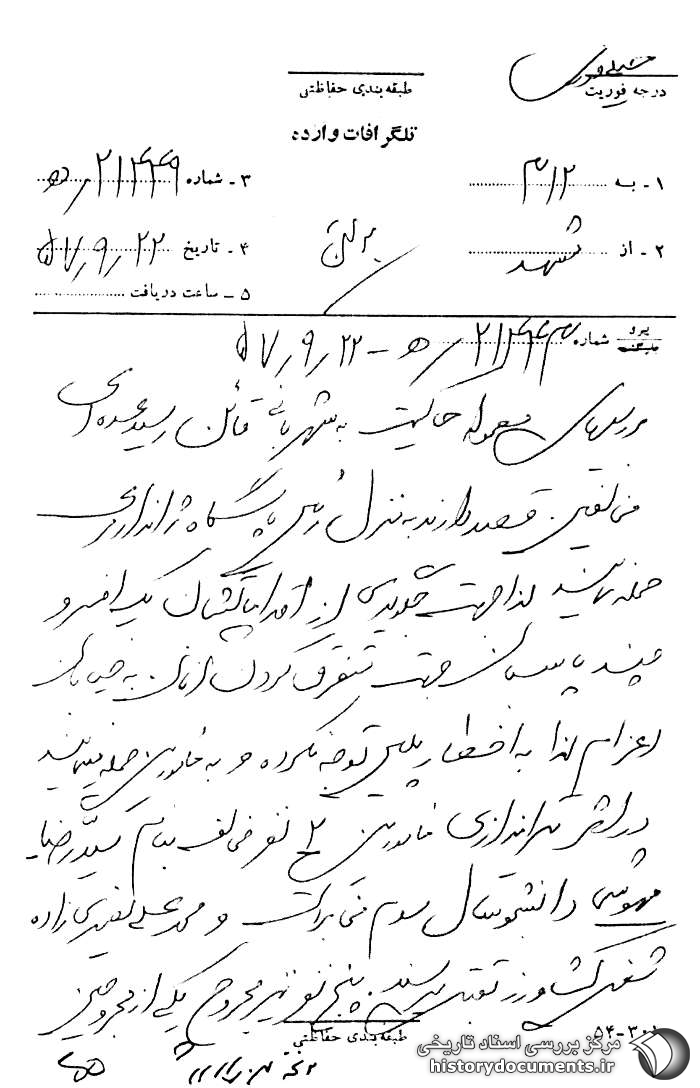 خیلی فوری
درجه فوریت
طبقه‌بندی حفاظتی
تلگرافات وارده
۱ - به ۳۱۲
۳ - شماره ۲۱۴۴۹/ه‍
۲ - از مشهد
۴ - تاریخ ۵۷/۹/۲۲
۵ - ساعت دریافت
پیرو شماره ۲۱۴۴۳/ه‍ - ۵۷/۹/۲۲
بررسیهای معموله حاکیست به شهربانی قائن رسید عده‌ای
مخالفین قصد دارند به منزل رئیس پاسگاه ژاندارمری
حمله نمایند لذا جهت جلوگیری از اقداماتشان یک افسر و
چند پاسبان جهت متفرق کردن آنان به خیابان
اعزام لذا به اخطار پلیس توجه نکرده و به مامورین حمله مینمایند
در اثر تیراندازی مامورین ۲ نفر مخالف بنام سید رضا
دانشجو سال سوم و محمد علی زاده
شغل کشاورز بقتل میرسند. پنج نفر نیز مجروح یکی از مجروحین
طبقه‌بندی حفاظتی
۵۴-۳۰۱
مرکز بررسی اسناد تاریخی
historydocuments.ir